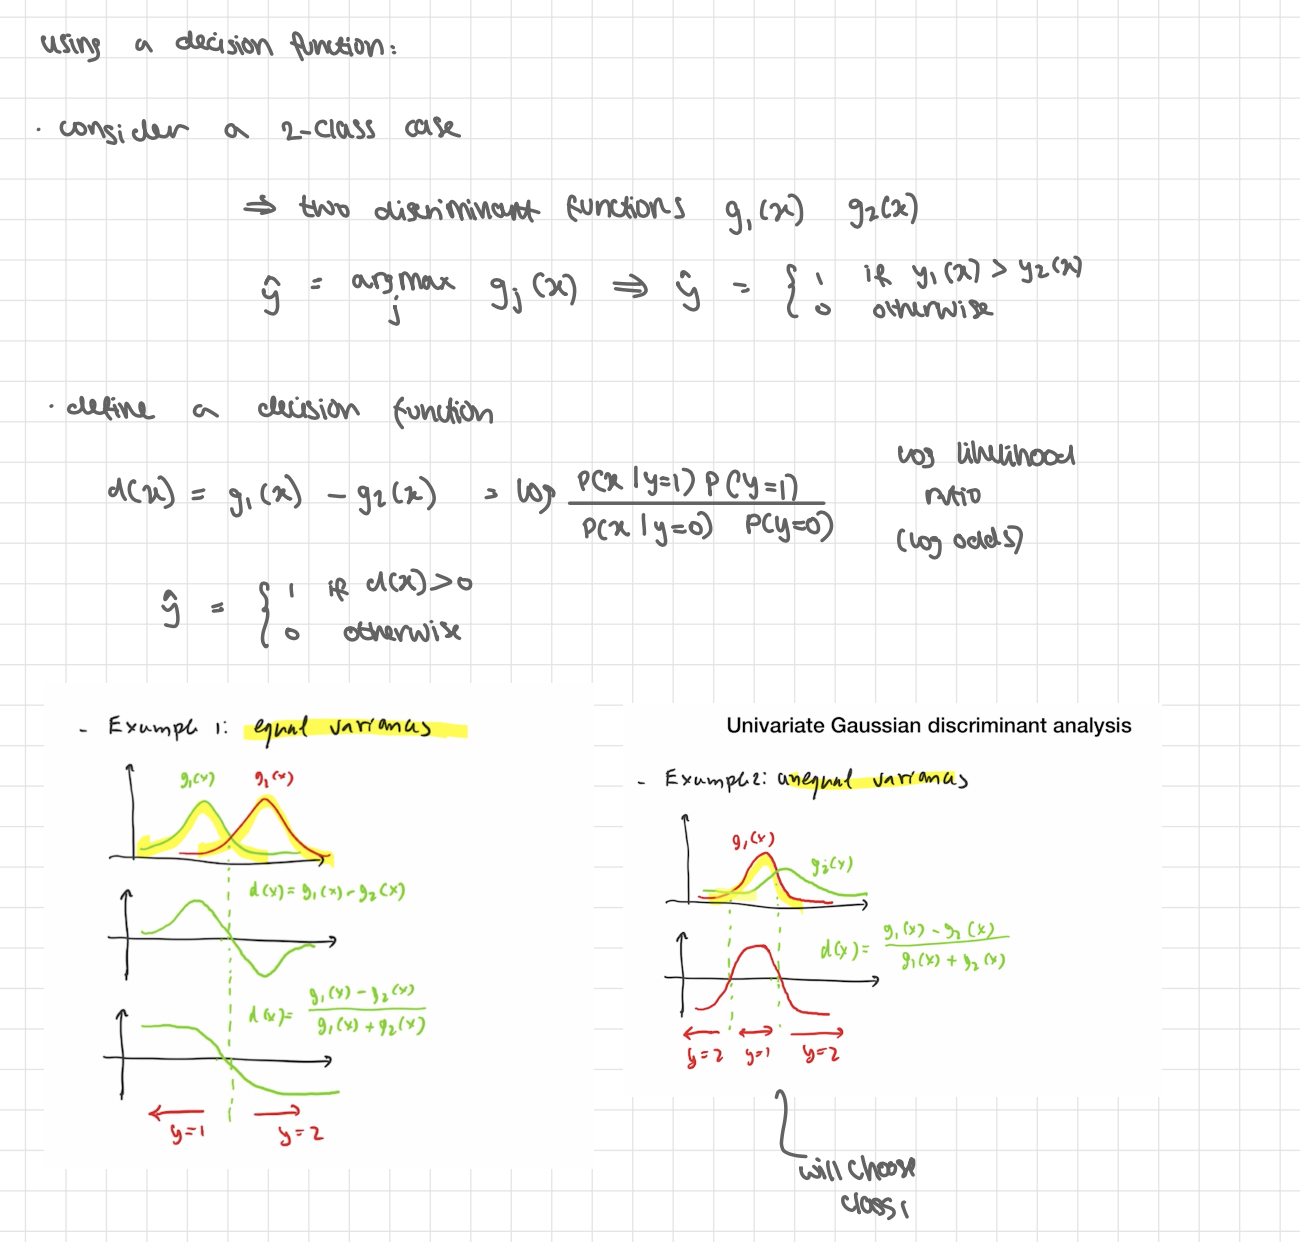 using a decision function:
· consider a 2-class case
⇒ two discriminant functions g₁(x) g₂(x)
ŷ = argmax j gⱼ(x) ⇒ ŷ = { 1 if y₁(x) > y₂(x)
0 otherwise
· define a decision function
d(x) = g₁(x) - g₂(x) = log P(x|y=1) P(y=1) / P(x|y=0) P(y=0)
log likelihood
ratio
(log odds)
ŷ = { 1 if d(x)>0
0 otherwise
- Example 1: equal variances
g₁(x) g₂(x)
d(x) = g₁(x) - g₂(x)
d(x) = g₁(x) - g₂(x) / g₁(x) + g₂(x)
y=1 y=2
Univariate Gaussian discriminant analysis
- Example 2: unequal variances
g₁(x) g₂(x)
d(x) = g₁(x) - g₂(x) / g₁(x) + g₂(x)
y=2 y=1 y=2
will choose
class 1